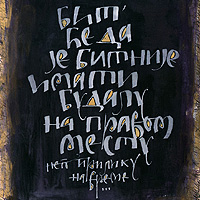 БИТ'
ЋЕ ДА
ЈЕ БИТНИЈЕ
ИМАТИ
БУДАЛУ
НА ПРАВОМ
МЕСТУ
НЕГ ПРИЛИКУ
НА ВРЕМЕ
...